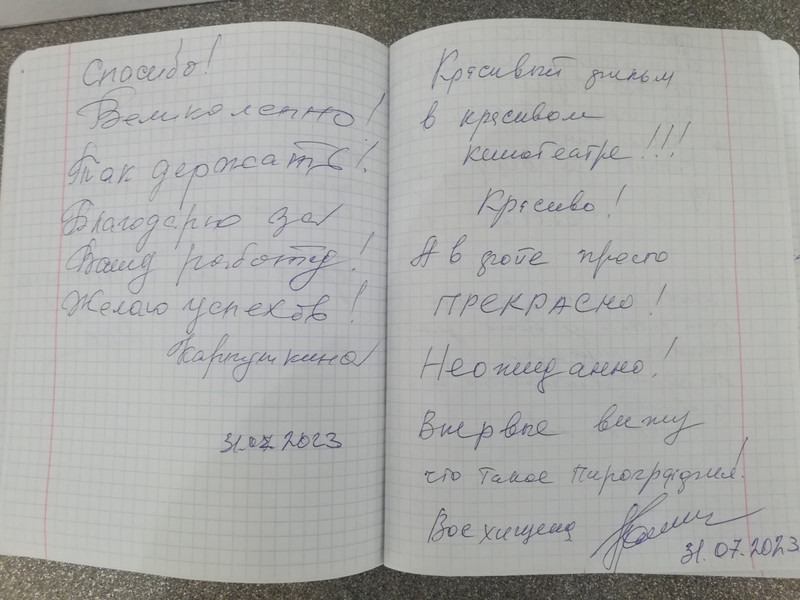 Спасибо!
Великолепно!
Так держать!
Благодарю за
Вашу работу!
Желаю успехов!
Карпушкина
31.07.2023
Красивый фильм
в красивом
кинотеатре!!!
Красиво!
А в фойе просто
ПРЕКРАСНО!
Неожиданно!
Впервые вижу
что такое Пирография!
Восхищена
31.07.2023